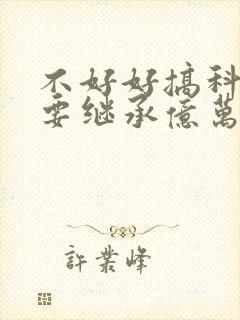 不好好搞科
要继承億萬
許業峰